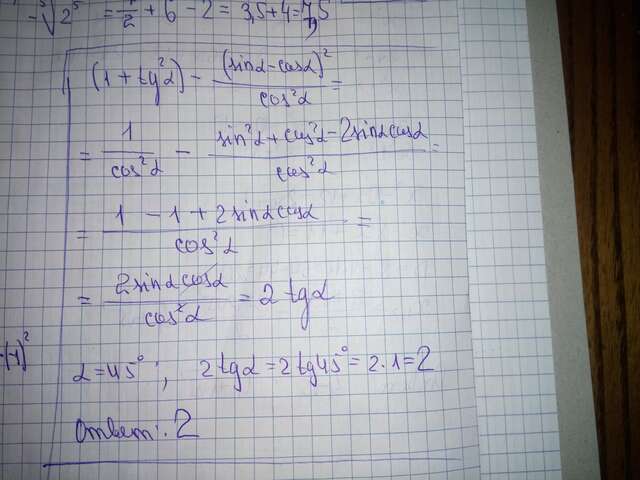 -⁵√2⁵ = 7/2 + 6 - 2 = 3,5 + 4 = 7,5
(1 + tg²α) - (sinα - cosα)²/cos²α =
= 1/cos²α - (sin²α + cos²α - 2sinαcosα)/cos²α =
= (1 - 1 + 2sinαcosα)/cos²α =
= 2sinαcosα/cos²α = 2 tgα
α = 45°; 2tgα = 2tg45° = 2·1 = 2
Ответ: 2